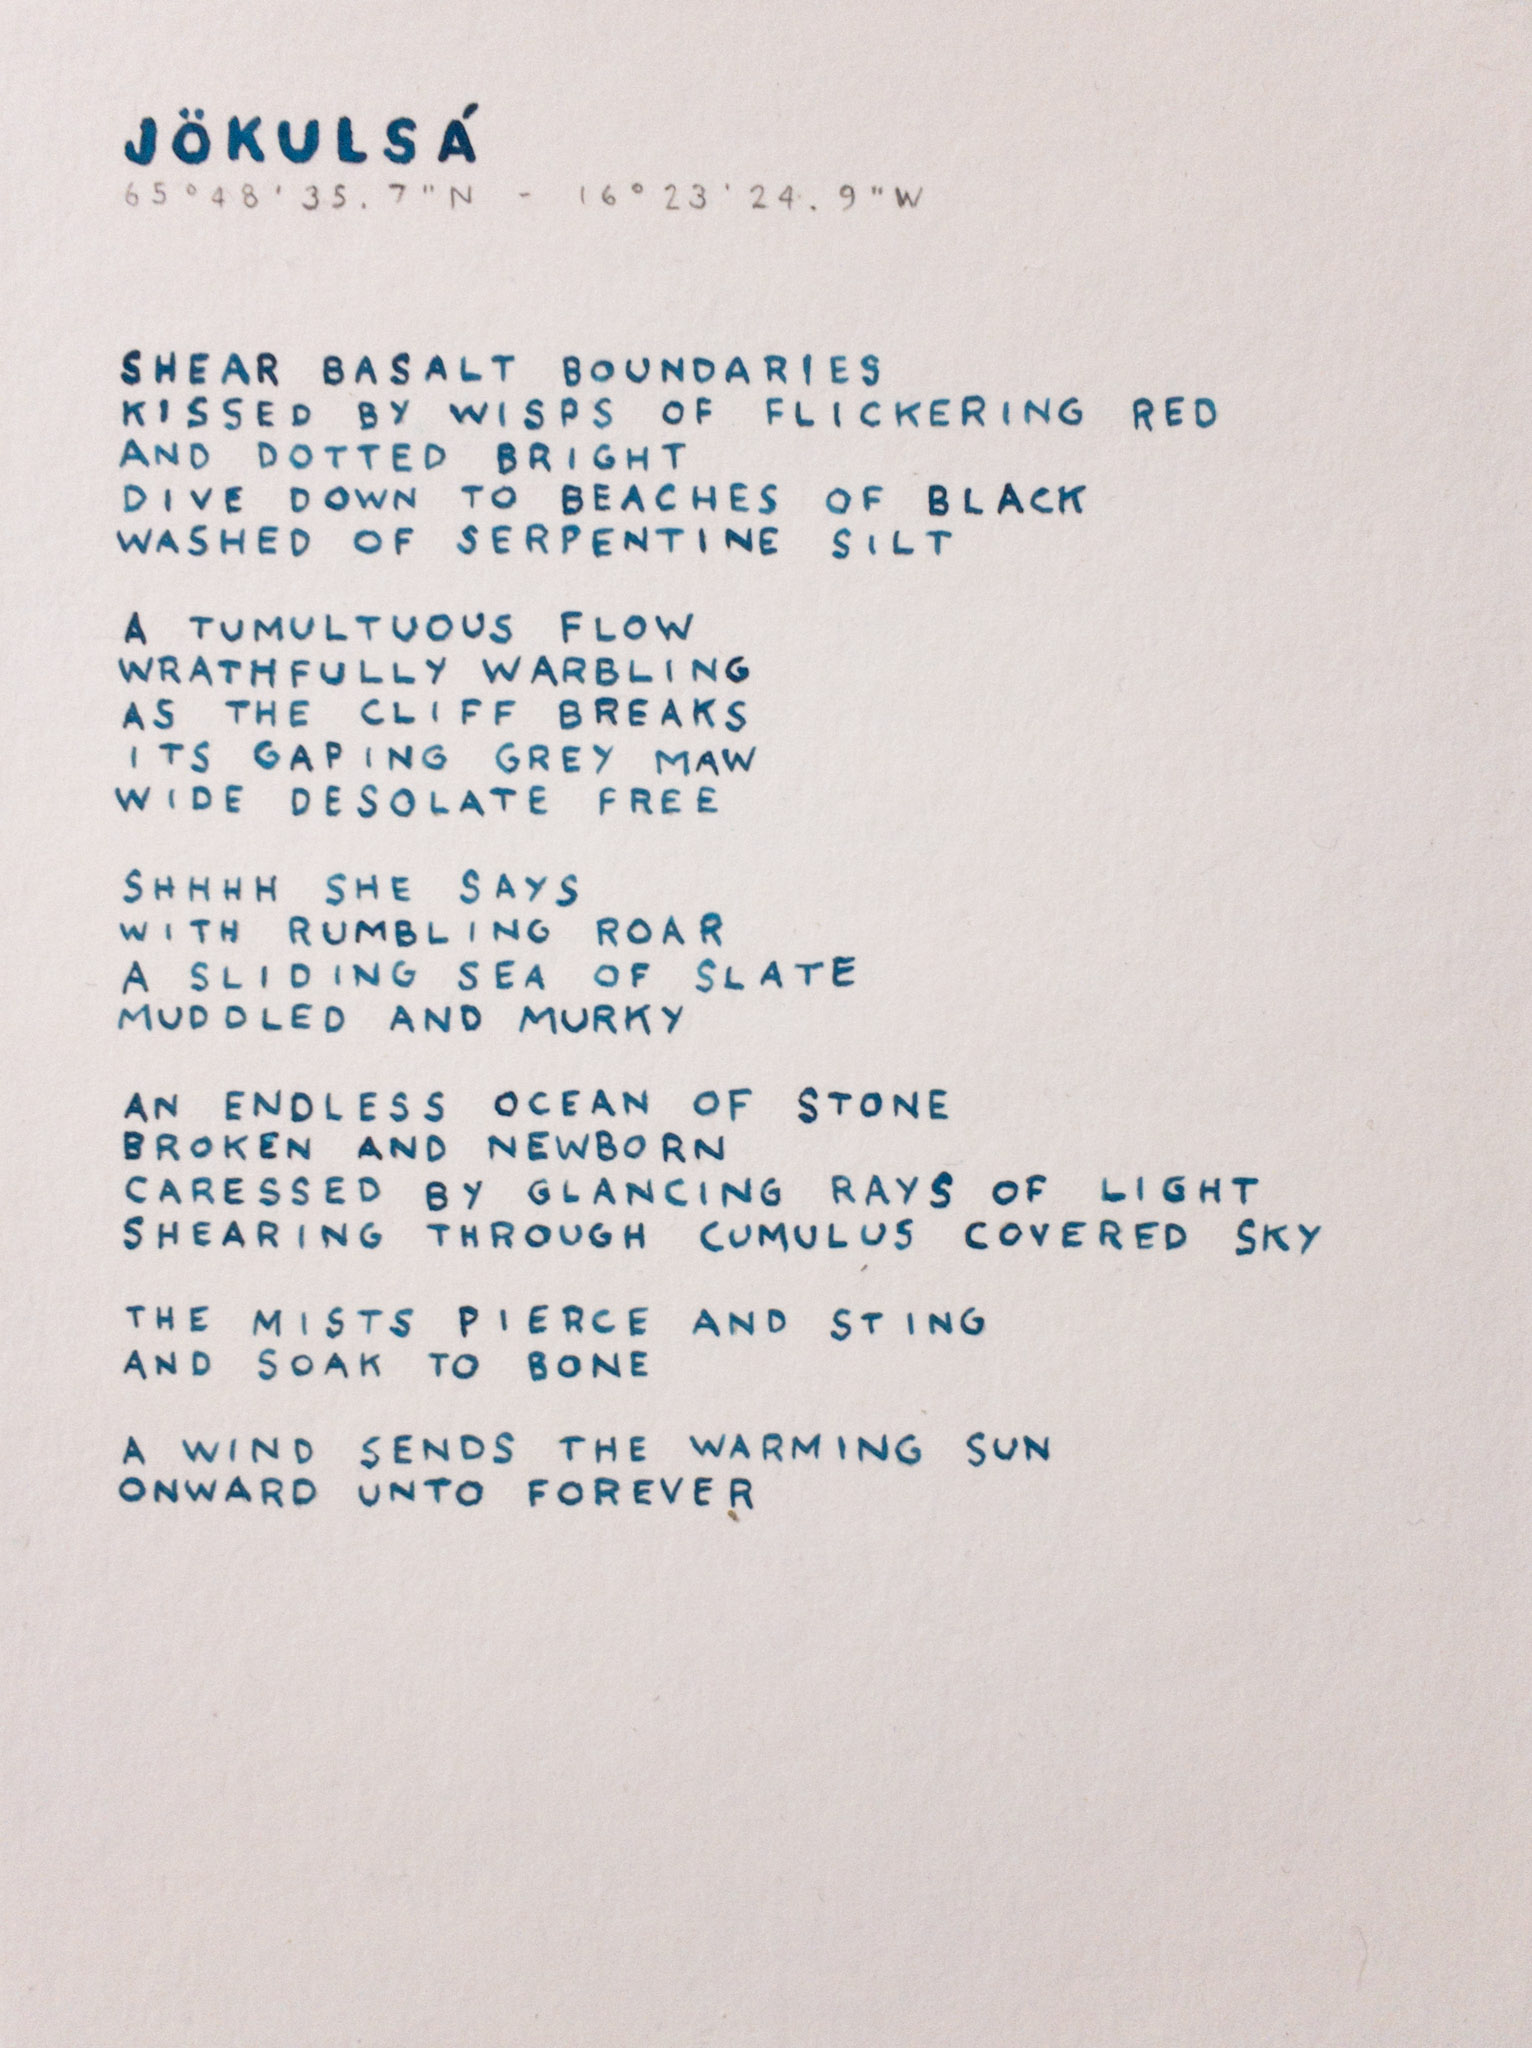 JÖKULSÁ
65°48'35.7"N - 16°23'24.9"W
SHEAR BASALT BOUNDARIES
KISSED BY WISPS OF FLICKERING RED
AND DOTTED BRIGHT
DIVE DOWN TO BEACHES OF BLACK
WASHED OF SERPENTINE SILT
A TUMULTUOUS FLOW
WRATHFULLY WARBLING
AS THE CLIFF BREAKS
ITS GAPING GREY MAW
WIDE DESOLATE FREE
SHHHH SHE SAYS
WITH RUMBLING ROAR
A SLIDING SEA OF SLATE
MUDDLED AND MURKY
AN ENDLESS OCEAN OF STONE
BROKEN AND NEWBORN
CARESSED BY GLANCING RAYS OF LIGHT
SHEARING THROUGH CUMULUS COVERED SKY
THE MISTS PIERCE AND STING
AND SOAK TO BONE
A WIND SENDS THE WARMING SUN
ONWARD UNTO FOREVER